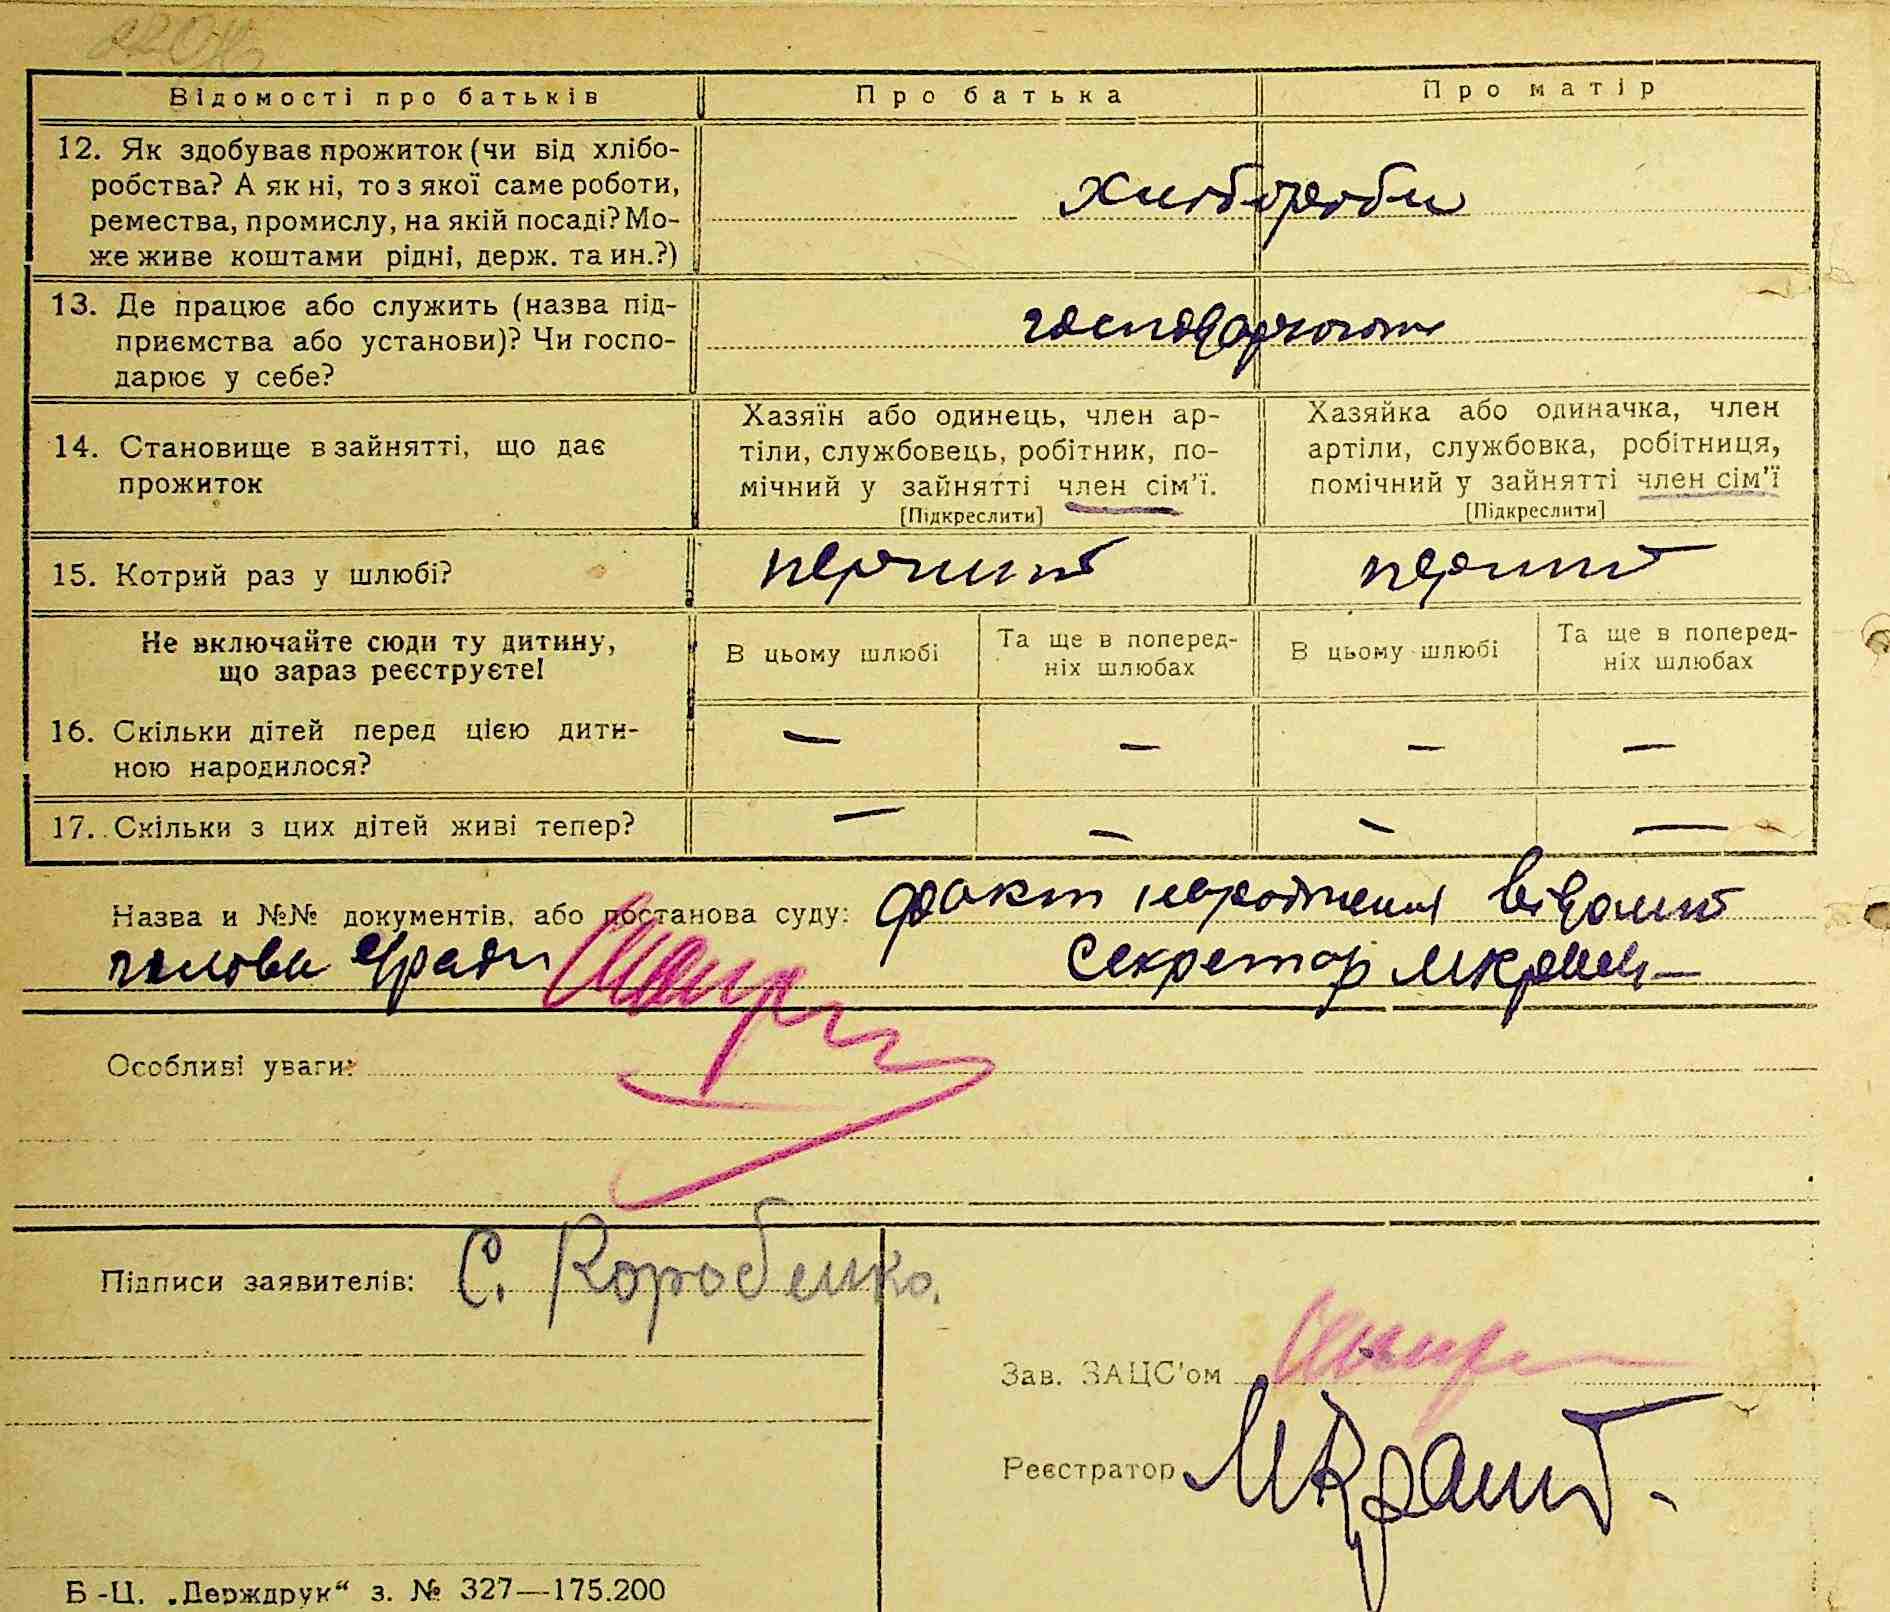 Відомості про батьків
Про батька
Про матір
12. Як здобуває прожиток (чи від хлібо-
робства? А як ні, то з якої саме роботи,
ремества, промислу, на якій посаді? Мо-
же живе коштами рідні, держ. та ин.?)
хлібороби
13. Де працює або служить (назва під-
приємства або установи)? Чи госпо-
дарює у себе?
господарюють
14. Становище в зайнятті, що дає
прожиток
Хазяїн або одинець, член ар-
тіли, службовець, робітник, по-
мічний у зайнятті член сім'ї.
[Підкреслити]
Хазяйка або одиначка, член
артіли, службовка, робітниця,
помічний у зайнятті член сім'ї
[Підкреслити]
15. Котрий раз у шлюбі?
перший
перший
Не включайте сюди ту дитину,
що зараз реєструєте!
В цьому шлюбі
Та ще в поперед-
ніх шлюбах
В цьому шлюбі
Та ще в поперед-
ніх шлюбах
16. Скільки дітей перед цією дити-
ною народилося?
— — — —
17. Скільки з цих дітей живі тепер?
— — — —
Назва и №№ документів, або постанова суду: факт народження відомий
голова с/ради Секретар
Особливі уваги:
Підписи заявителів: С. Коробенко.
Зав. ЗАЦС'ом
Реєстратор
Б-Ц. „Держдрук“ з. № 327—175.200